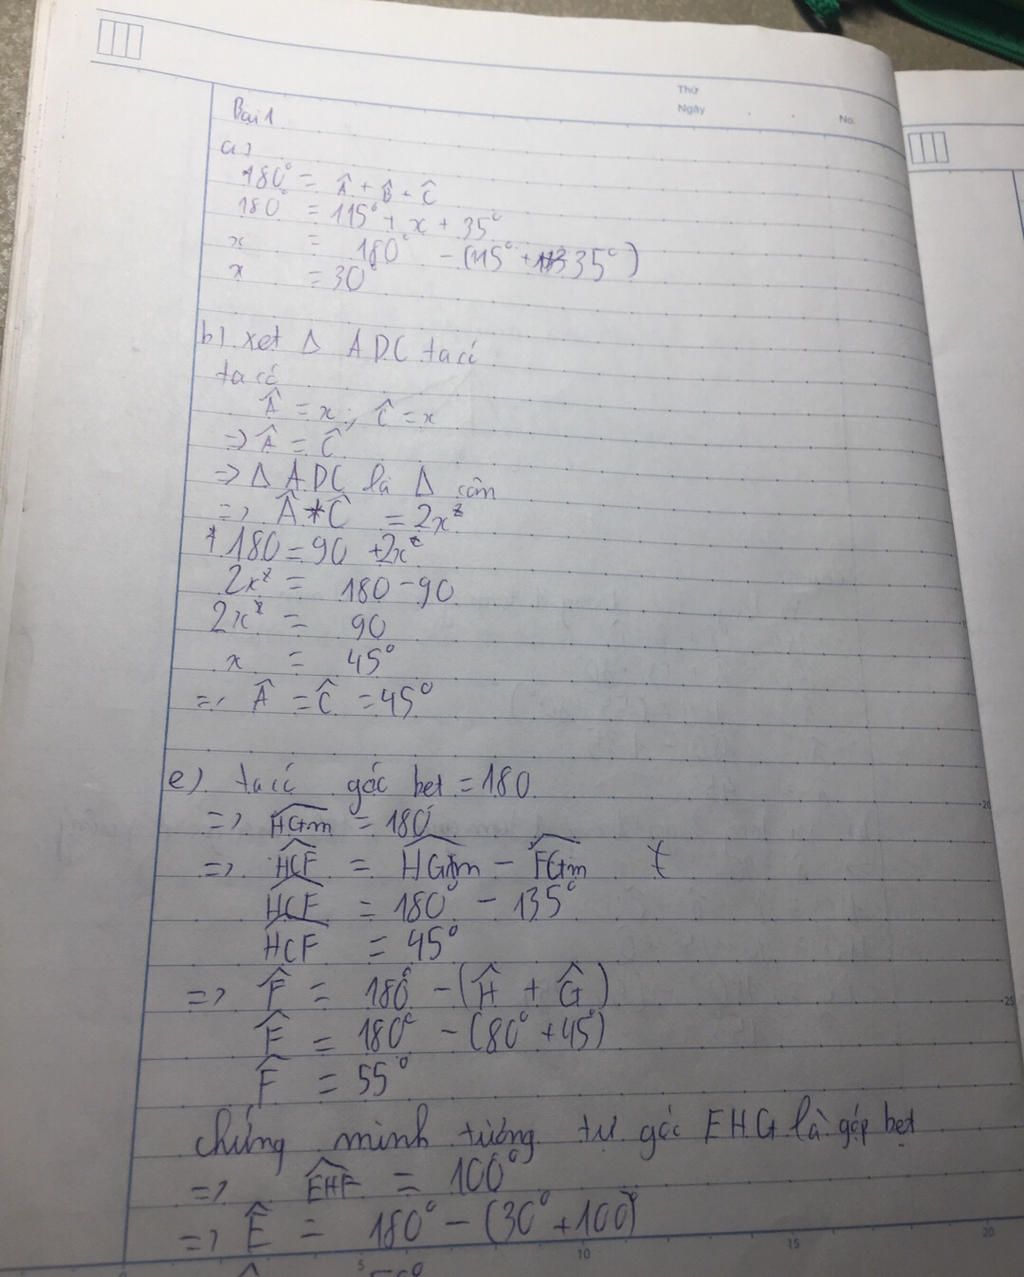 Thứ
Ngày
No.
Bài 1
a)
180° = Â + B̂ + Ĉ
180° = 115° + x + 35°
x = 180° - (115° + 35°)
x = 30°
b) xet Δ ADC ta có
ta có
Â = x; Ĉ = x
=> Â = Ĉ
=> Δ ADC là Δ cân
=> Â + Ĉ = 2x
180 = 90 + 2x
2x = 180 - 90
2x = 90
x = 45°
=> Â = Ĉ = 45°
e) ta có góc bet = 180
=> HGm = 180
=> HCF = HGm - FGm
HCF = 180° - 135°
HCF = 45°
=> F̂ = 180° - (Ĥ + Ĝ)
F̂ = 180° - (80° + 45°)
F̂ = 55°
chứng minh tương tự góc EHG là góp bẹt
=> EHF = 100°
=> Ê = 180° - (30° + 100°)
5 10 15 20